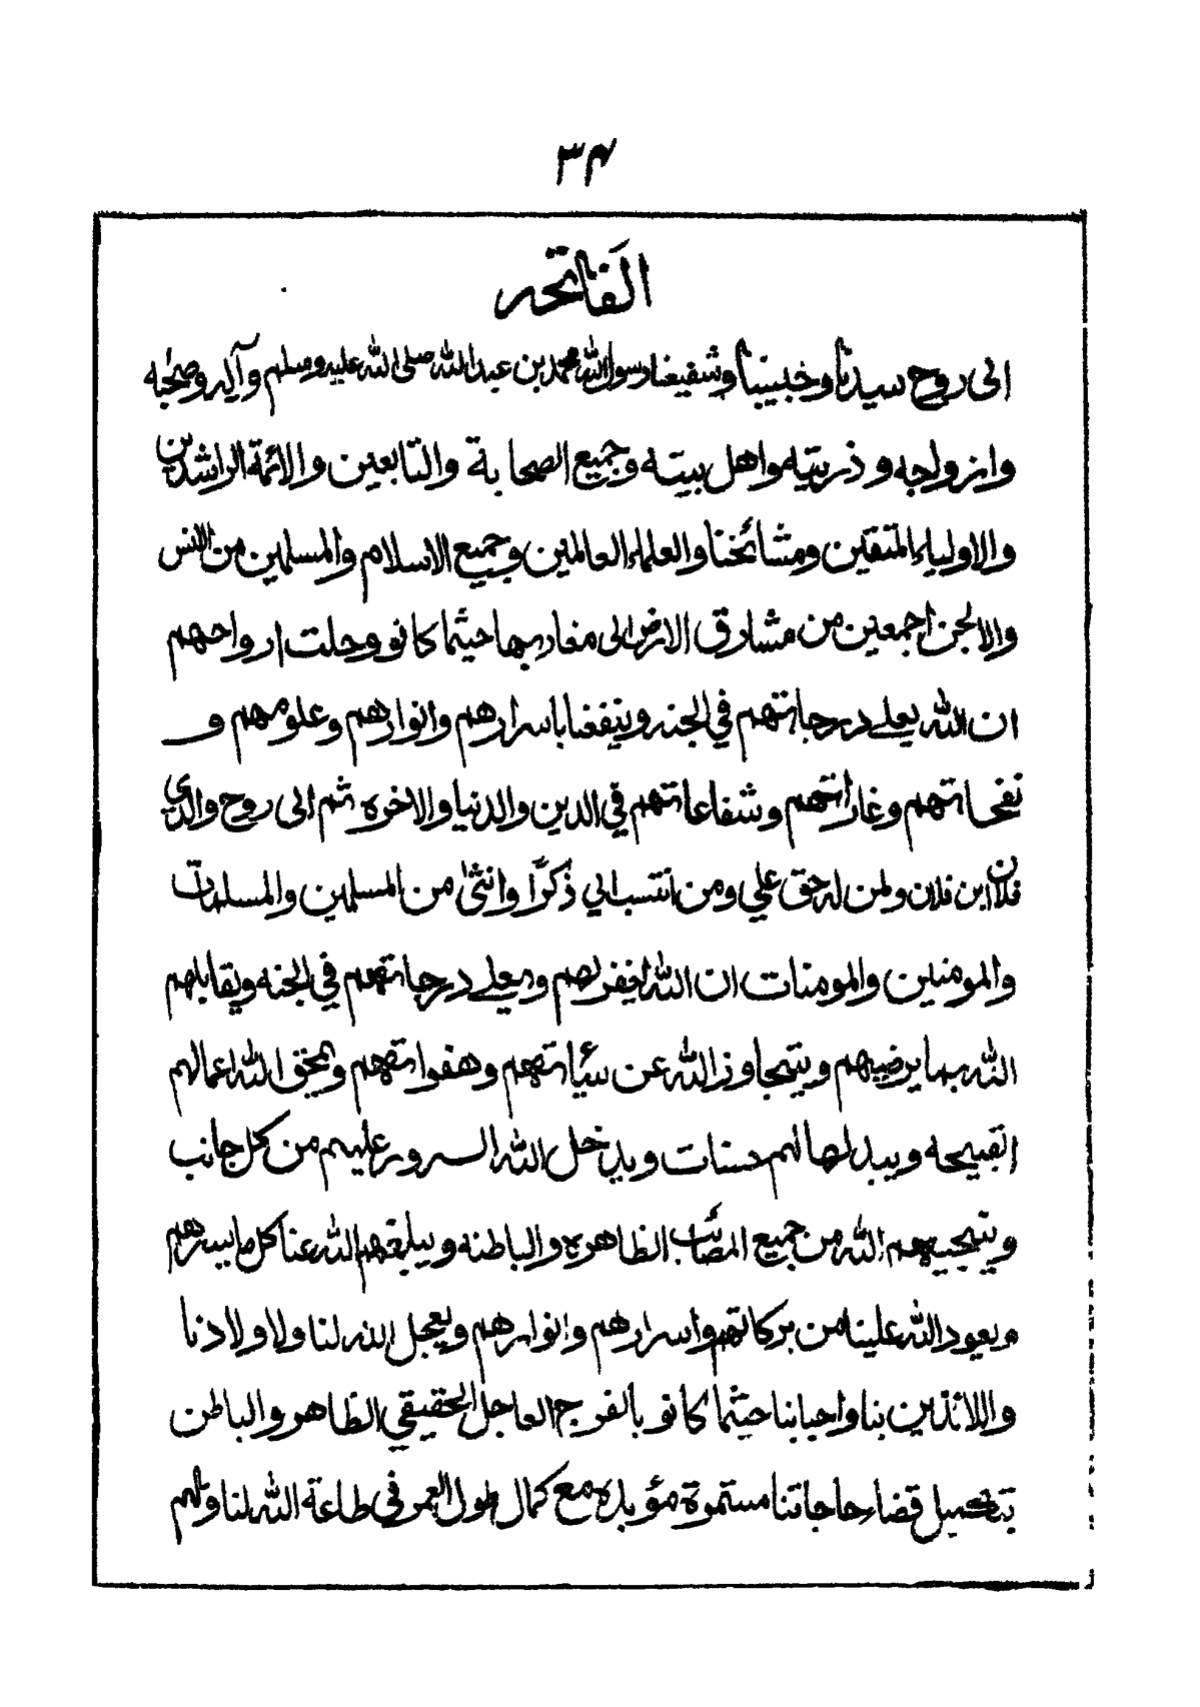 ۳۴
الفاتحه
الى روح سيدنا وحبيبنا وشفيعنا رسول الله محمد بن عبد الله صلى الله عليه وسلم وآله وصحبه
وازواجه وذريته واهل بيته وجميع الصحابة والتابعين والائمة الراشدين
والاولياء المتقين ومشائخنا والعلماء العالمين وجميع الاسلام والمسلمين من الانس
والاجن اجمعين من مشارق الارض الى مغاربها حيثما كانو وحلت ارواحهم
ان الله يعلي درجاتهم في الجنه وينفعنا باسرارهم وانوارهم وعلومهم و
نفحاتهم وغاراتهم وشفاعاتهم في الدين والدنيا والاخره ثم الى روح والدي
فلان ابن فلان ولمن له حق علي ومن انتسب الي ذكرًا وانثى من المسلمين والمسلمات
والمومنين والمومنات ان الله ايغفر لهم ويعلي درجاتهم في الجنه ويقابلهم
الله بما يرضيهم ويتجاوز الله عن سيئاتهم وهفواتهم ويمحق الله اعمالهم
القبيحه ويبدلها لهم حسنات ويدخل الله السرور عليهم من كل جانب
وينجيهم الله من جميع المصائب الظاهره والباطنه ويبلغهم الله عنا كل مايسرهم
ويعود الله علينا من بركاتهم واسرارهم وانوارهم ويعجل الله لنا ولاولادنا
واللائذين بنا واحبابنا حيثما كانو بالفرج العاجل الحقيقي الظاهر والباطن
بتحصيل قضاء حاجاتنا مستمرة مؤبده مع كمال طول العمر في طاعة الله لنا ولهم